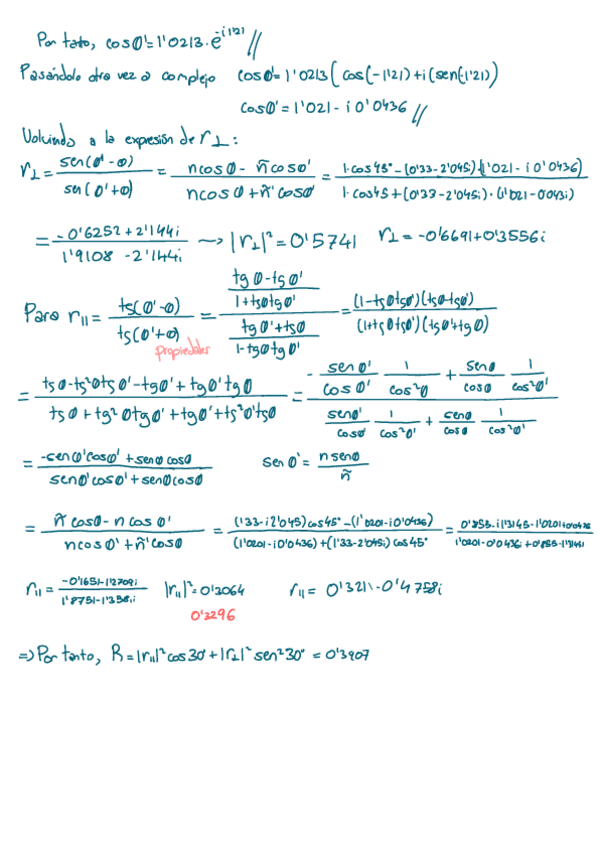 Por tato, cosθ' = 1'0213 · e^(-i 1'21) //
Pasándolo otra vez a complejo cosθ' = 1'0213 (cos(-1'21) + i(sen(-1'21))
cosθ' = 1'021 - i 0'0436 //
Volviendo a la expresión de r⊥ :
r⊥ = sen(θ' - θ) / sen(θ' + θ) = n cosθ - ñ cosθ' / n cosθ + ñ' cosθ = 1·cos45° - (0'33 - 2'045i)(1'021 - i 0'0436) / 1·cos45 + (0'33 - 2'045i)·(1'021 - 0'043i)
= -0'6252 + 2'144i / 1'9108 - 2'144i ⟶ |r⊥|² = 0'5741 r⊥ = -0'6691 + 0'3556i
Para r∥ = ts(θ' - θ) / ts(θ' + θ) = tgθ - tsθ' / 1 + tsθtgθ' / tgθ' + tsθ / 1 - tgθtgθ' = (1 - tsθtsθ')(tsθ - tsθ') / (1 + tsθtsθ')(tsθ' + tgθ)
propiedades
= tsθ - ts²θtsθ' - tgθ' + tgθ'tgθ / tsθ + tg²θtgθ' + tgθ' + ts²θ'tsθ = - senθ'/cosθ' 1/cos²θ + senθ/cosθ 1/cos²θ' / senθ'/cosθ' 1/cos²θ' + senθ/cosθ 1/cos²θ'
= -senθ'cosθ' + senθcosθ / senθ'cosθ' + senθcosθ senθ' = n senθ / ñ
= ñ cosθ - n cosθ' / n cosθ' + ñ' cosθ = (1'33 - i2'045)cos45° - (1'0201 - i0'0436) / (1'0201 - i0'0436) + (1'33 - 2'045i) cos45°
r∥ = -0'1651 - 1'2709i / 1'8751 - 1'358i |r∥|² = 0'3064 r∥ = 0'3211 - 0'4758i
0'3296
⇒ Por tanto, R = |r∥|² cos30° + |r⊥|² sen²30° = 0'3907